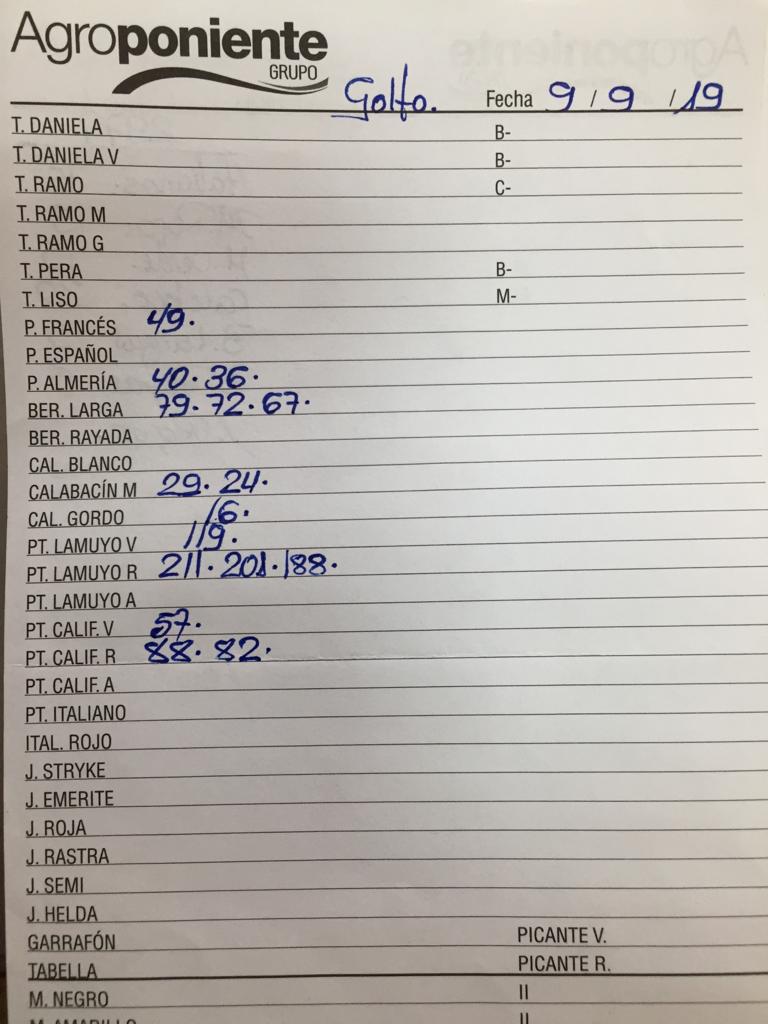 Agroponiente
GRUPO
Golfo. Fecha 9 / 9 / 19
T. DANIELA B-
T. DANIELA V B-
T. RAMO C-
T. RAMO M
T. RAMO G
T. PERA B-
T. LISO M-
P. FRANCÉS 49.
P. ESPAÑOL
P. ALMERÍA 40. 36.
BER. LARGA 79. 72. 67.
BER. RAYADA
CAL. BLANCO
CALABACÍN M 29. 24.
CAL. GORDO 16.
PT. LAMUYO V 119.
PT. LAMUYO R 211. 201. 188.
PT. LAMUYO A
PT. CALIF. V 57.
PT. CALIF. R 88. 82.
PT. CALIF. A
PT. ITALIANO
ITAL. ROJO
J. STRYKE
J. EMERITE
J. ROJA
J. RASTRA
J. SEMI
J. HELDA
GARRAFÓN PICANTE V.
TABELLA PICANTE R.
M. NEGRO II
M. AMARILLO II